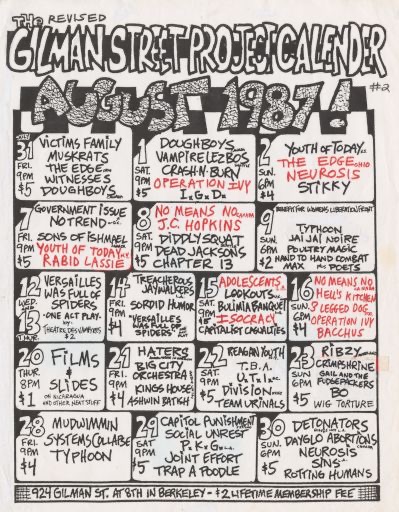 THE REVISED
GILMAN STREET PROJECT CALENDER
AUGUST 1987! #2
JULY 31 FRI. 9PM $5
VICTIMS FAMILY
MUSKRATS
THE EDGE
WITNESSES
DOUGHBOYS
1 SAT. 9PM $5
DOUGHBOYS
VAMPIRE LEZBOS
CRASH-N-BURN
OPERATION IVY
I.X.G.X.D.X.
2 SUN. 6PM $4
YOUTH OF TODAY N.Y.
THE EDGE OHIO
NEUROSIS
STIKKY
7 FRI. 9PM $5
GOVERNMENT ISSUE
NO TREND
SONS OF ISHMAEL
YOUTH OF TODAY N.Y.
RABID LASSIE
8 SAT. 9PM $5
NO MEANS NO
J.C. HOPKINS
DIDDLY SQUAT
DEAD JACKSONS
CHAPTER 13
9 SUN. 6PM $2
BENEFIT FOR WOMENS LIBERATION FRONT
TYPHOON
JAI JAI NOIRE
POULTRY MAGIC
HAND TO HAND COMBAT
MAX POETS
12 WED. 13 THUR.
VERSAILLES
WAS FULL OF
SPIDERS
-ONE ACT PLAY-
by:
THEATRE DES VAMPIRES
$2
14 FRI. 9PM $4
TREACHEROUS
JAYWALKERS
SORDID HUMOR
"VERSAILLES
WAS FULL OF
SPIDERS"
15 SAT. 9PM $5
ADOLESCENTS
LOOKOUTS
BULIMIA BANQUET
ISOCRACY
CAPITALIST CASUALTIES
16 SUN. 6PM $5
NO MEANS NO
HELL'S KITCHEN
3 LEGGED DOG
OPERATION IVY
BACCHUS
20 THUR 8PM $1
FILMS
&
SLIDES
ON NICARAGUA
AND OTHER NEAT STUFF
21 FRI. 9PM $4
HATERS
BIG CITY
ORCHESTRA
KINGS HOUSE
ASHWIN BATISH
22 SAT. 9PM $5
REAGAN YOUTH
T.B.A.
U.X.T.X.I.X.
DIVISION
TEAM URINALS
23 SUN 6PM $5
RIBZY
CRIMPSHRINE
GAIL AND THE
FUDGEPACKERS
BO
WIG TORTURE
28 FRI. 9PM $4
MUDWIMMIN
SYSTEMS COLLAPSE
TYPHOON
29 SAT. 9PM $5
CAPITOL PUNISHMENT
SOCIAL UNREST
F.X.K.X.G.X. L.A.
JOINT EFFORT
TRAP A POODLE
30 SUN. 6PM $5
DETONATORS
DAYGLO ABORTIONS
NEUROSIS
SINS
ROTTING HUMANS
924 GILMAN ST. AT 8TH IN BERKELEY - $2 LIFETIME MEMBERSHIP FEE